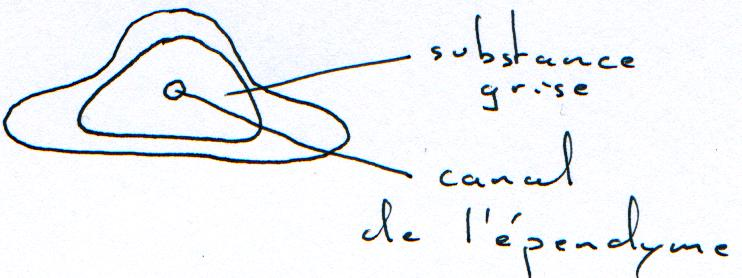 substance
grise
canal
de l'épendyme